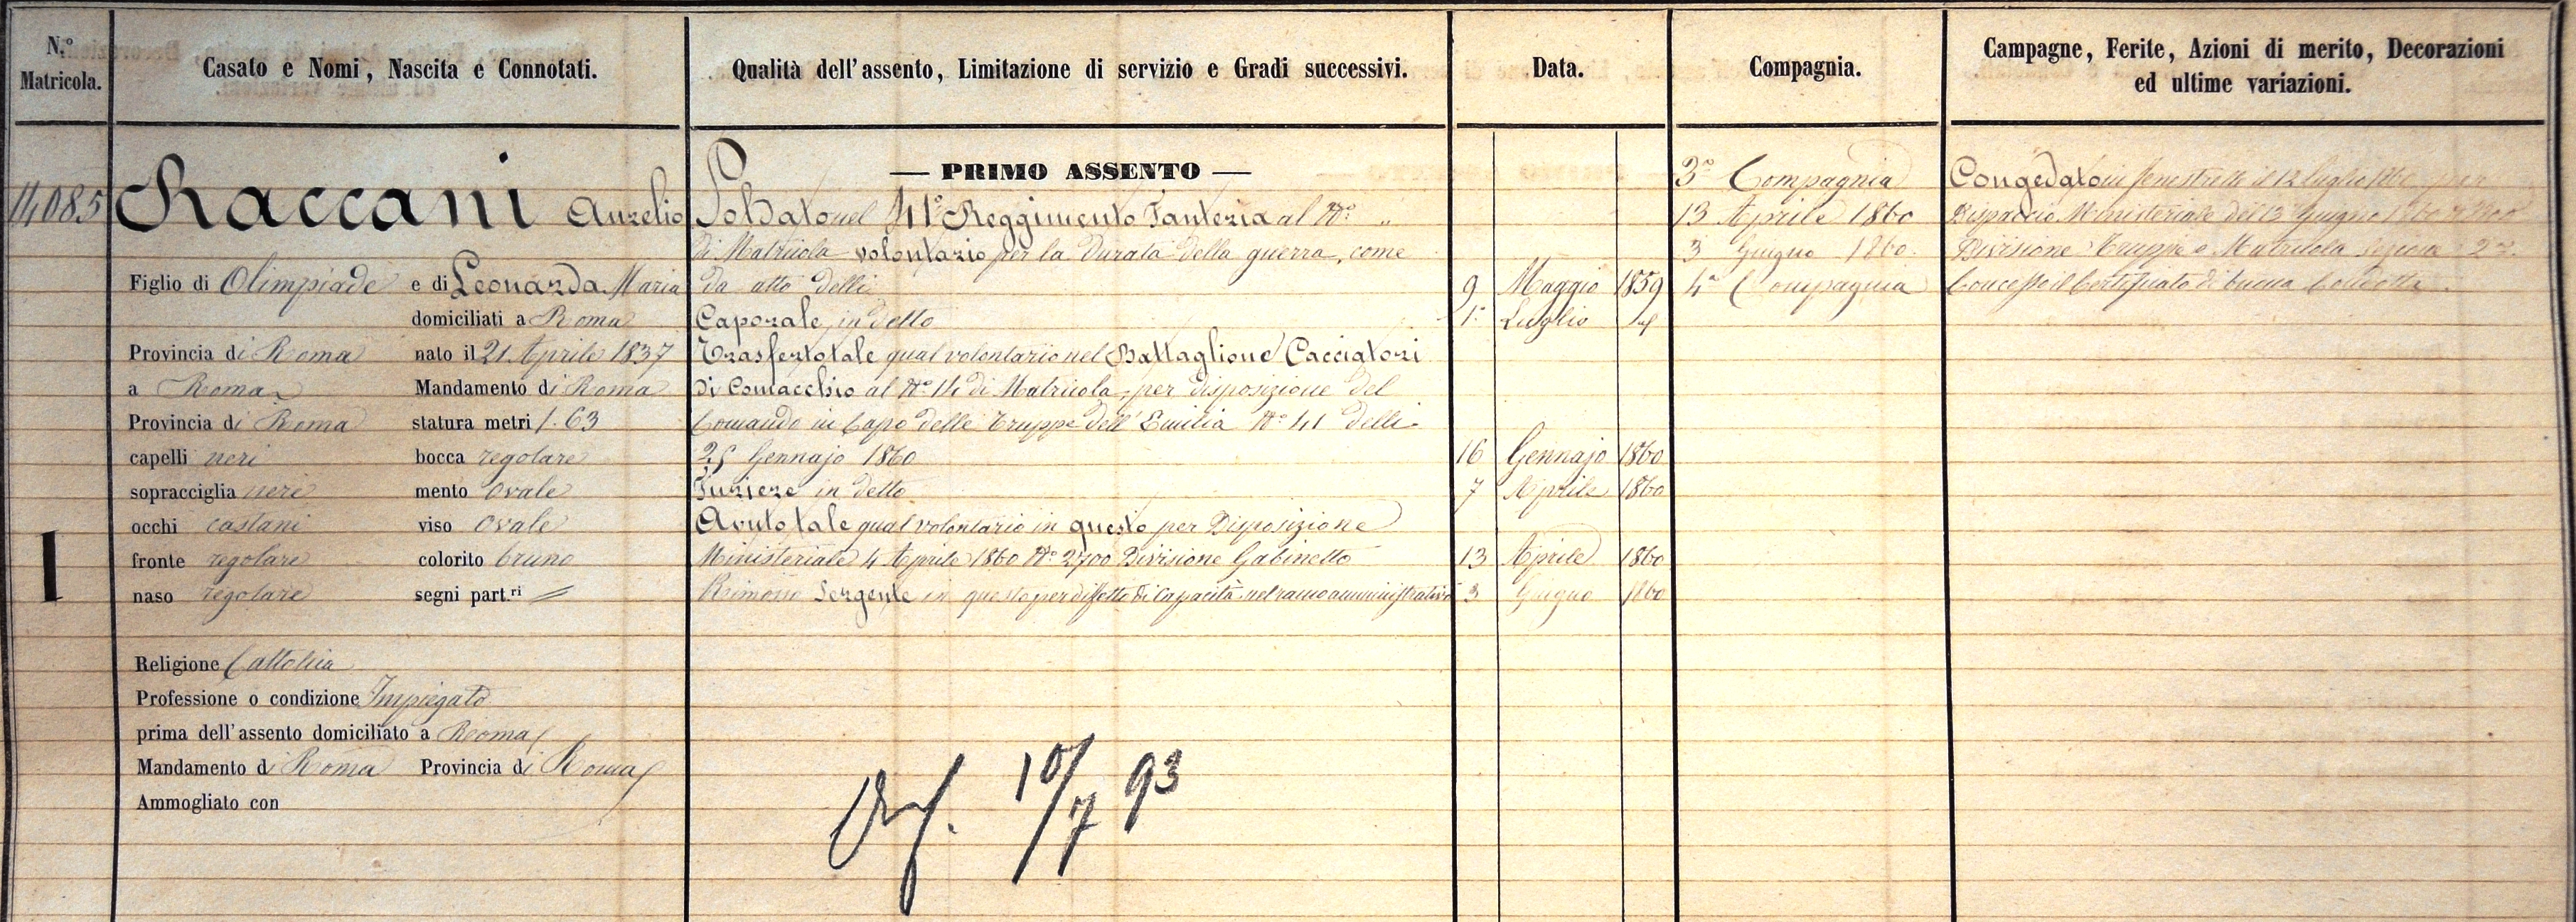 N.º Matricola.
Casato e Nomi, Nascita e Connotati.
Qualità dell'assento, Limitazione di servizio e Gradi successivi.
Data.
Compagnia.
Campagne, Ferite, Azioni di merito, Decorazioni
ed ultime variazioni.
14085
Raccani Aurelio
Figlio di Olimpiade e di Leonarda Maria
domiciliati a Roma
Provincia di Roma nato il 21 Aprile 1837
a Roma Mandamento di Roma
Provincia di Roma statura metri 1.63
capelli neri bocca regolare
sopracciglia neri mento ovale
occhi castani viso ovale
fronte regolare colorito bruno
naso regolare segni part.ri =
1
Religione Cattolica
Professione o condizione Impiegato
prima dell'assento domiciliato a Roma
Mandamento di Roma Provincia di Roma
Ammogliato con
— PRIMO ASSENTO —
Soldato nel 41º Reggimento Fanteria al Nº "
di Matricola volontario per la durata della guerra, come
da atto delli 9 Maggio 1859
Caporale in detto 1º Luglio
Trasferto tale qual volontario nel Battaglione Cacciatori
di Comacchio al Nº 14 di Matricola, per disposizione del
Comando in Capo delle Truppe dell'Emilia Nº 41 delli
25 Gennajo 1860 16 Gennajo 1860
Furiere in detto 7 Aprile 1860
Avuto tale qual volontario in questo per Disposizione
Ministeriale 4 Aprile 1860 Nº 2700 Divisione Gabinetto 13 Aprile 1860
Rimosso Sergente in questo per diffetto di capacità nel ramo amministrativo 3 Giugno 1860
3ª Compagnia
13 Aprile 1860
3 Giugno 1860.
4ª Compagnia
Congedato in Fenestrelle il 12 luglio 1860 per
Dispaccio Ministeriale del 13 Giugno 1860
Divisione Truppe e Matricola Sezione 2ª.
Concesso il Certificato di buona Condotta.
10/7 93